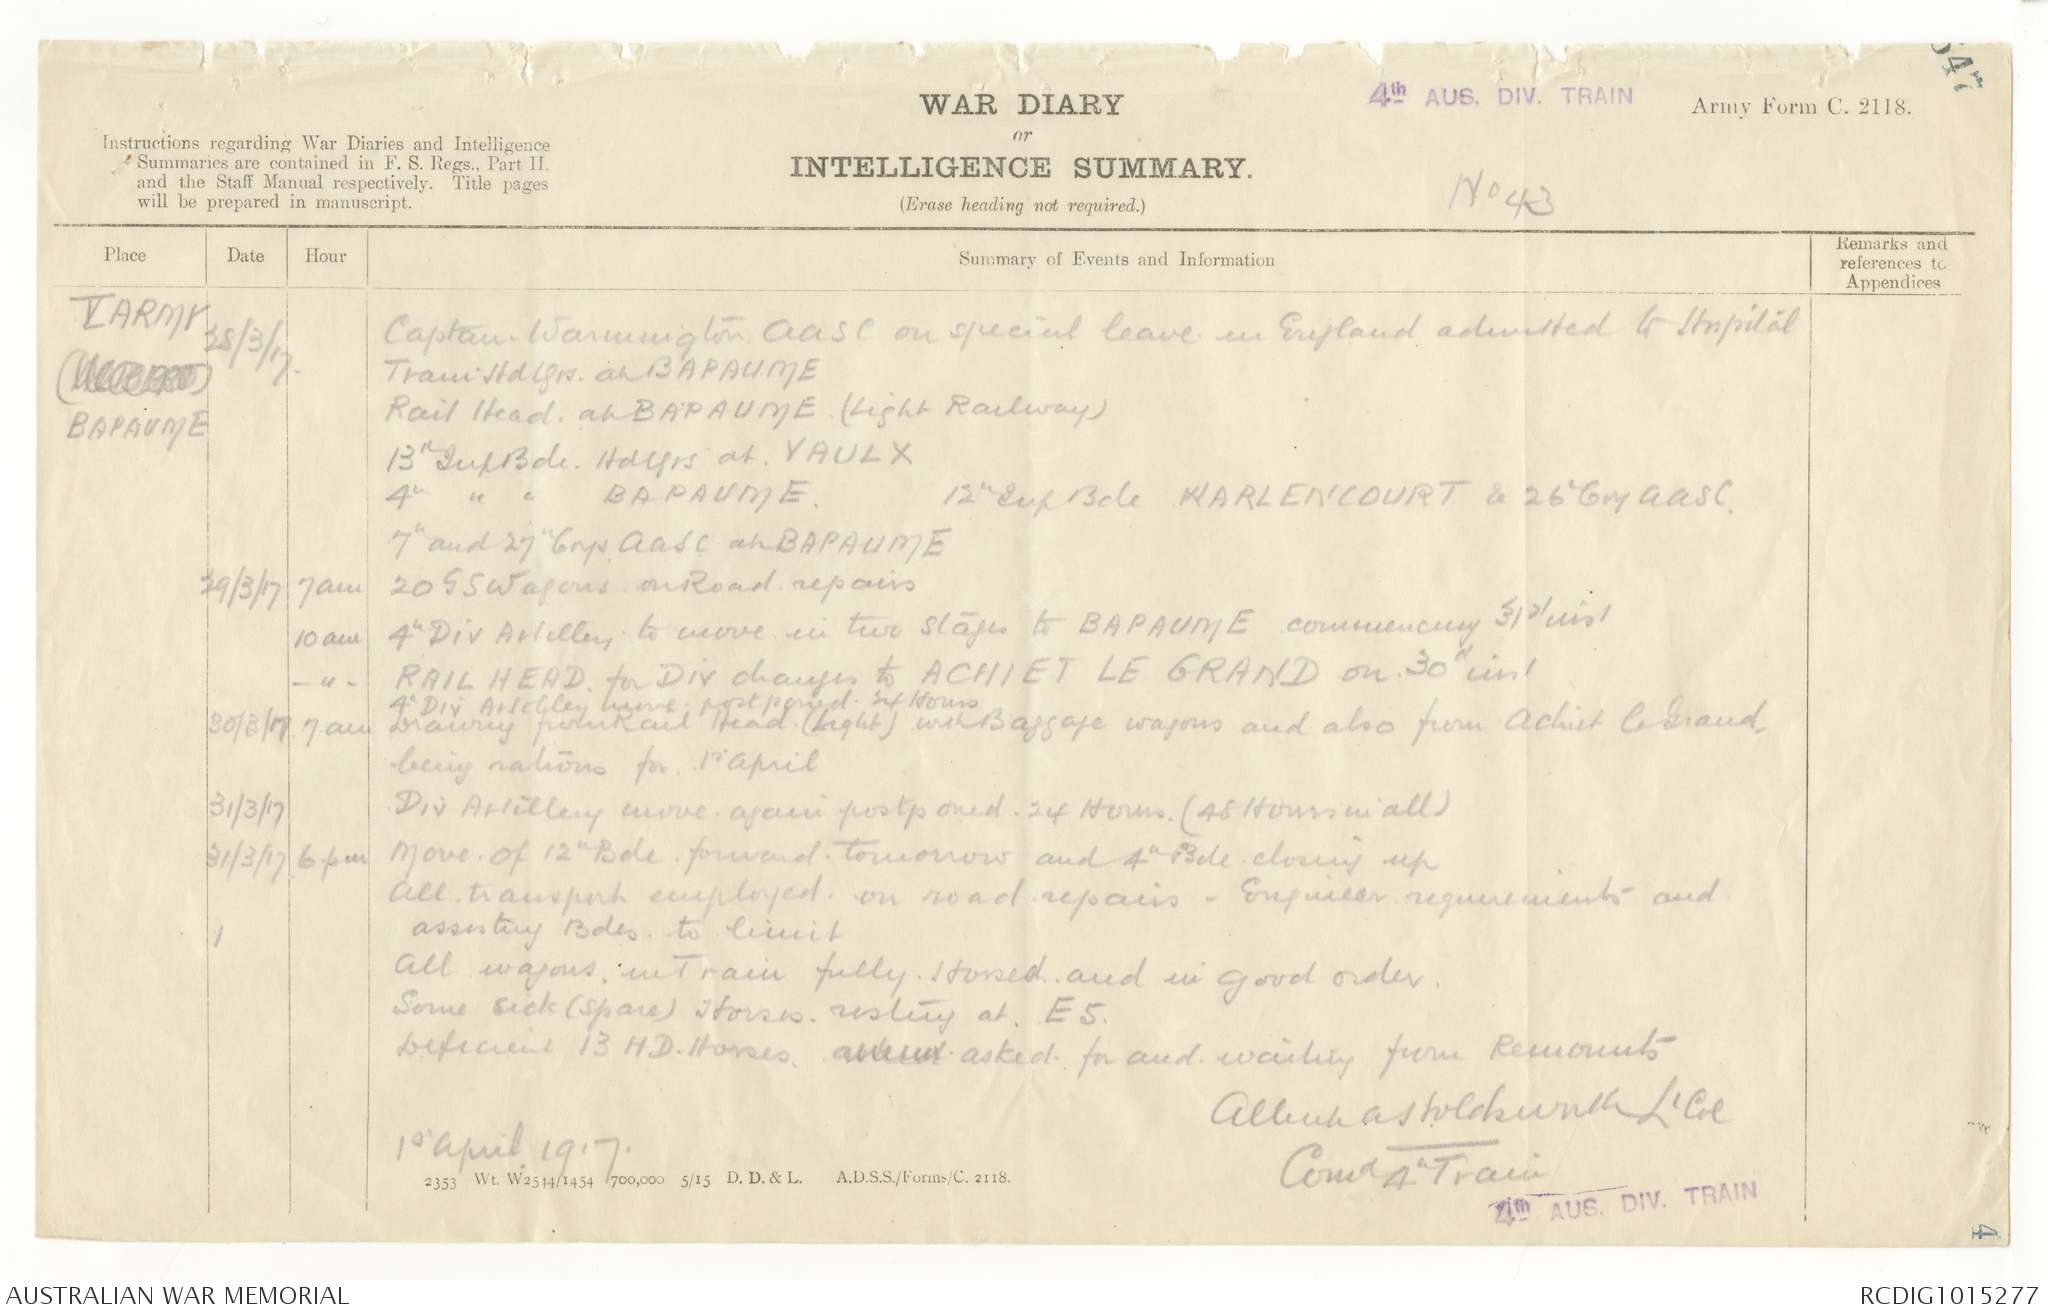 4th AUS. DIV. TRAIN
Army Form C. 2118.
WAR DIARY
or
INTELLIGENCE SUMMARY.
(Erase heading not required.)
Instructions regarding War Diaries and Intelligence
Summaries are contained in F. S. Regs., Part II.
and the Staff Manual respectively. Title pages
will be prepared in manuscript.
No 43
Place Date Hour Summary of Events and Information Remarks and references to Appendices
V ARMY
BAPAUME
28/3/17. Captain Warmington AASC on special leave in England admitted to Hospital
Train Hdqrs. at BAPAUME
Rail Head. at BAPAUME (Light Railway)
13th Inf Bde. Hdqrs at. VAULX
4th " " BAPAUME. 12th Inf Bde WARLENCOURT & 26 Coy AASC.
7th and 27th Coys AASC at BAPAUME
29/3/17 7 am 20 GS Wagons on Road repairs
10 am 4th Div Artillery to move in two stages to BAPAUME commencing 31st inst
- " - RAIL HEAD. for Div changes to ACHIET LE GRAND on 30th inst
4th Div Artillery move postponed 24 Hours
30/3/17 7 am Drawing from Rail Head (Light) with Baggage wagons and also from Achiet le Grand,
being rations for 1st April
31/3/17 Div Artillery move again postponed 24 Hours. (48 Hours in all)
31/3/17 6 pm Move of 12th Bde forward tomorrow and 4th Bde closing up
All transport employed on road repairs - Engineer requirements and
assisting Bdes. to limit
All wagons in Train fully Horsed and in good order.
Some sick (spare) Horses resting at. E5.
Deficient 13 H.D. Horses. asked for and waiting from Remounts
Holdsworth Lt Col
Comd 4th Train
1st April 1917.
2353 Wt. W2544/1454 700,000 5/15 D. D. & L. A.D.S.S./Forms/C. 2118.
4th AUS. DIV. TRAIN
4
AUSTRALIAN WAR MEMORIAL
RCDIG1015277